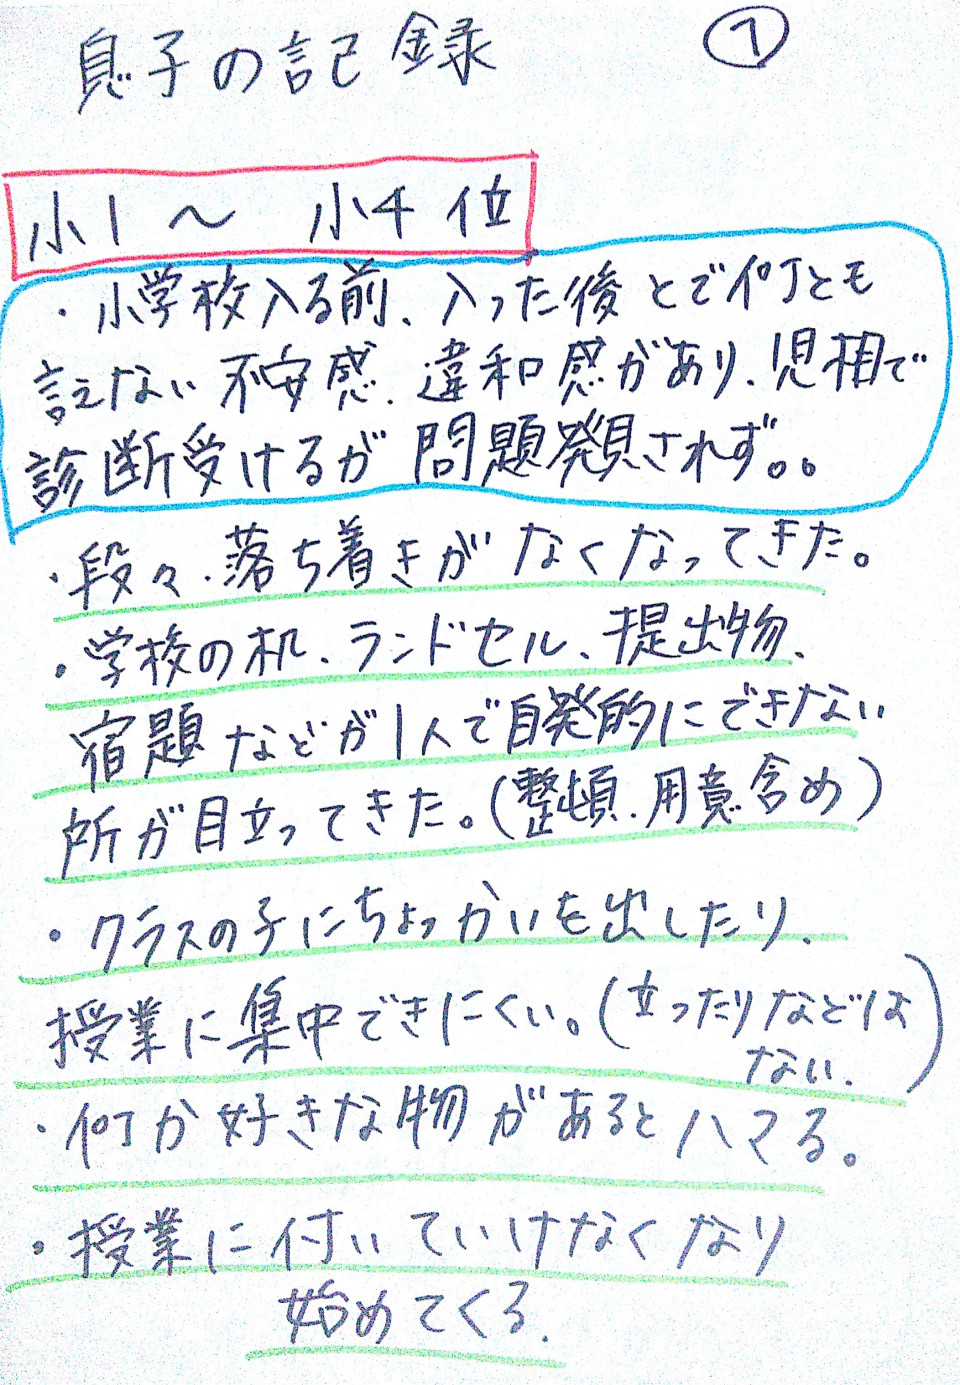 息子の記録 ①
小1〜 小4位
・小学校入る前、入った後とで何とも
言えない不安感、違和感があり、児相で
診断受けるが問題発見されず。。
・段々、落ち着きがなくなってきた。
・学校の机、ランドセル、提出物、
宿題などが1人で自発的にできない
所が目立ってきた。(整頓、用意含め)
・クラスの子にちょっかいを出したり、
授業に集中できにくい。(立ったりなどは
ない、)
・何か好きな物があるとハマる。
・授業に付いていけなくなり
始めてくる.